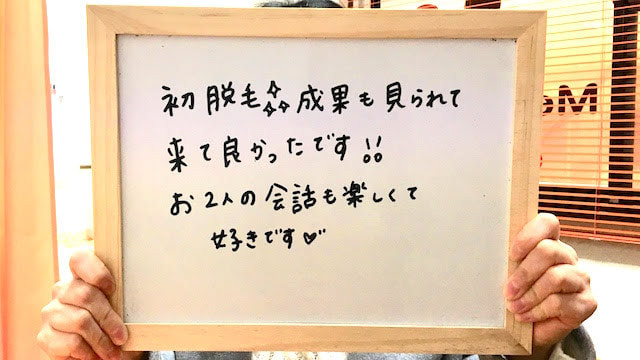 初脱毛✧✧✧成果も見られて
来て良かったです!!
お2人の会話も楽しくて
好きです♡
Me